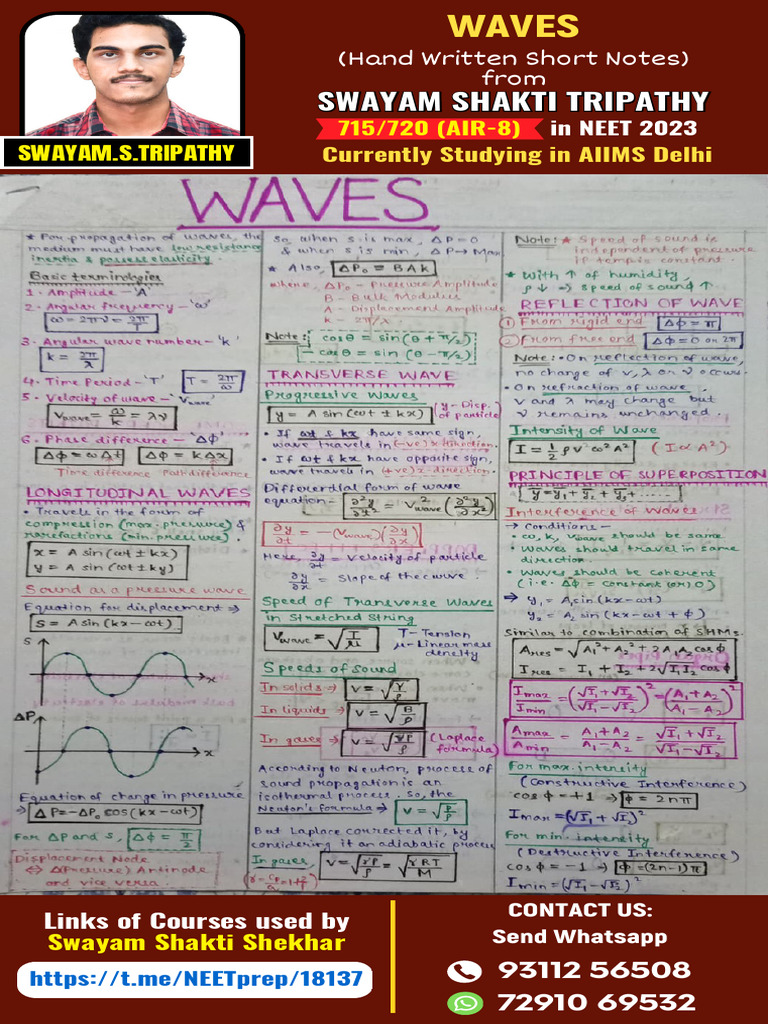 WAVES
(Hand Written Short Notes)
from
SWAYAM SHAKTI TRIPATHY
715/720 (AIR-8) in NEET 2023
Currently Studying in AIIMS Delhi
SWAYAM.S.TRIPATHY
WAVES
* For propagation of waves, the
medium must have low resistance,
inertia & possess elasticity.
Basic terminologies
1. Amplitude - 'A'
2. Angular frequency - 'ω'
ω = 2πν = 2π/T
3. Angular wave number - 'k'
k = 2π/λ
4. Time Period - 'T' T = 2π/ω
5. Velocity of wave - 'Vwave'
Vwave = ω/k = λν
6. Phase difference - 'Δϕ'
Δϕ = ωΔt Δϕ = kΔx
Time difference Path difference
LONGITUDINAL WAVES
• Travels in the form of
compression (max. pressure) &
rarefactions (min. pressure)
x = A sin(ωt ± kx)
y = A sin(ωt ± ky)
Sound as a pressure wave
Equation for displacement ⇒
S = A sin(kx - ωt)
S
x
ΔP
x
Equation of change in pressure
⇒ ΔP = -ΔP₀ cos(kx - ωt)
For ΔP and S, Δϕ = π/2
Displacement Node
⇔ Δ(Pressure) Antinode
and vice versa.
So, when s is max, ΔP = 0
& when s is min, ΔP → Max
* Also, ΔP₀ = BAk
where, ΔP₀ - Pressure Amplitude
B - Bulk Modulus
A - Displacement Amplitude
k - 2π/λ
Note: cosθ = sin(θ + π/2)
- cosθ = sin(θ - π/2)
TRANSVERSE WAVE
Progressive Waves
y = A sin(ωt ± kx) (y - Disp. of particle)
• If ωt & kx have same sign,
wave travels in (-ve) x-direction.
• If ωt & kx have opposite sign,
wave travels in (+ve) x-direction.
Differential form of wave
equation - ∂²y/∂t² = V²wave (∂²y/∂x²)
∂y/∂t = -(Vwave)(∂y/∂x)
Here, ∂y/∂t = Velocity of particle
∂y/∂x = Slope of the curve.
Speed of Transverse Waves
in Stretched String
Vwave = √T/μ T - Tension
μ - Linear mass
density
Speeds of sound
In solids → v = √Y/ρ
In liquids → v = √B/ρ
In gases → v = √γP/ρ (Laplace
formula)
According to Newton, process of
sound propagation is an
isothermal process. So, the
Newton's formula → v = √P/ρ
But Laplace corrected it, by
considering it an adiabatic process
In gases, v = √γP/ρ = √γRT/M
Note: * Speed of sound is
independent of pressure
if temp is constant.
* With ↑ of humidity,
ρ↓ ⇒ speed of sound ↑
REFLECTION OF WAVE
① From rigid end Δϕ = π
② From free end Δϕ = 0 or 2π
Note: • On reflection of wave,
no change of v, λ or ν occurs.
• On refraction of wave,
v and λ may change but
ν remains unchanged.
Intensity of Wave
I = 1/2 ρvω²A² (I ∝ A²)
PRINCIPLE OF SUPERPOSITION
y = y₁ + y₂ + y₃ + .....
Interference of Waves
→ Conditions -
• ω, k, vwave should be same
• Waves should travel in same
direction.
• Waves should be coherent
(i.e. Δϕ = constant (or) 0)
⇒ y₁ = A₁ sin(kx - ωt)
y₂ = A₂ sin(kx - ωt + ϕ)
Similar to combination of SHMs.
Ares = √A₁² + A₂² + 2A₁A₂cosϕ
Ires = I₁ + I₂ + 2√I₁I₂ cosϕ
Imax/Imin = (√I₁ + √I₂ / √I₁ - √I₂)² = (A₁ + A₂ / A₁ - A₂)²
Amax/Amin = A₁ + A₂ / A₁ - A₂ = √I₁ + √I₂ / √I₁ - √I₂
For max. intensity
(Constructive Interference)
cosϕ = +1 → ϕ = 2nπ
Imax = (√I₁ + √I₂)²
For min. intensity
(Destructive Interference)
cosϕ = -1 → ϕ = (2n-1)π
Imin = (√I₁ - √I₂)²
Links of Courses used by
Swayam Shakti Shekhar
https://t.me/NEETprep/18137
CONTACT US:
Send Whatsapp
93112 56508
72910 69532